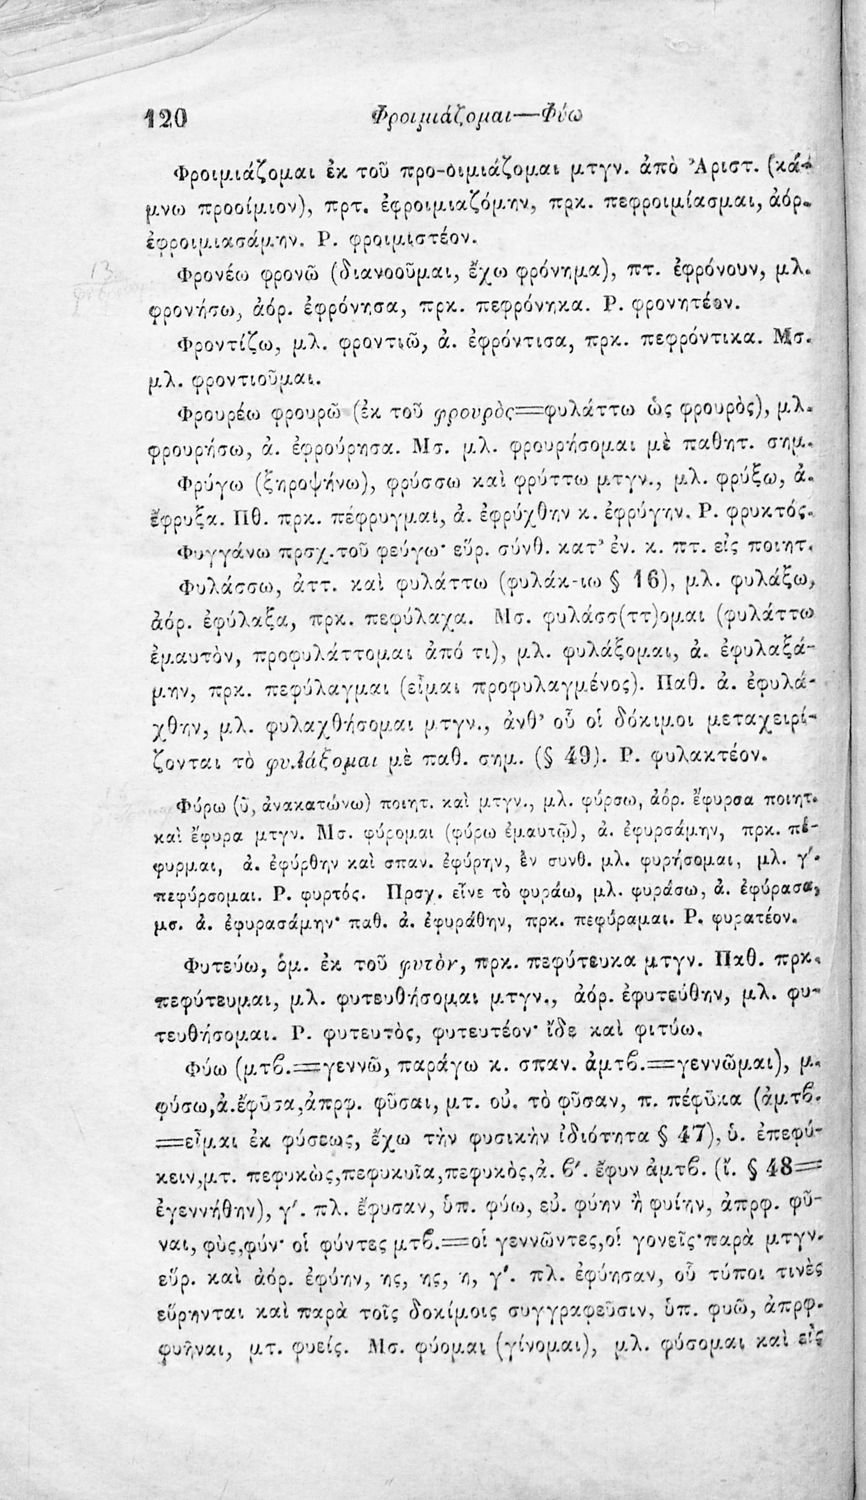 120 Φροιμιάζομαι—Φύω
Φροιμιάζομαι ἐκ τοῦ προ-οιμιάζομαι μτγν. ἀπὸ Ἀριστ. (κά-
μνω προοίμιον), πρτ. ἐφροιμιαζόμην, πρκ. πεφροιμίασμαι, ἀόρ.
ἐφροιμιασάμην. Ρ. φροιμιστέον.
Φρονέω φρονῶ (διανοοῦμαι, ἔχω φρόνημα), πτ. ἐφρόνουν, μλ.
φρονήσω, ἀόρ. ἐφρόνησα, πρκ. πεφρόνηκα. Ρ. φρονητέον.
Φροντίζω, μλ. φροντιῶ, ἀ. ἐφρόντισα, πρκ. πεφρόντικα. Μσ.
μλ. φροντιοῦμαι.
Φρουρέω φρουρῶ (ἐκ τοῦ φρουρὸς=φυλάττω ὡς φρουρὸς), μλ.
φρουρήσω, ἀ. ἐφρούρησα. Μσ. μλ. φρουρήσομαι μὲ παθητ. σημ.
Φρύγω (ξηροψήνω), φρύσσω καὶ φρύττω μτγν., μλ. φρύξω, ἀ.
ἔφρυξα. Πθ. πρκ. πέφρυγμαι, ἀ. ἐφρύχθην κ. ἐφρύγην. Ρ. φρυκτός.
Φυγγάνω πρσχ. τοῦ φεύγω· εὕρ. σύνθ. κατ' ἐν. κ. πτ. εἰς ποιητ.
Φυλάσσω, ἀττ. καὶ φυλάττω (φυλάκ-ιω § 16), μλ. φυλάξω,
ἀόρ. ἐφύλαξα, πρκ. πεφύλαχα. Μσ. φυλάσσ(ττ)ομαι (φυλάττω
ἐμαυτὸν, προφυλάττομαι ἀπό τι), μλ. φυλάξομαι, ἀ. ἐφυλαξά-
μην, πρκ. πεφύλαγμαι (εἶμαι προφυλαγμένος). Παθ. ἀ. ἐφυλά-
χθην, μλ. φυλαχθήσομαι μτγν., ἀνθ' οὗ οἱ δόκιμοι μεταχειρί-
ζονται τὸ φυλάξομαι μὲ παθ. σημ. (§ 49). Ρ. φυλακτέον.
Φύρω (ῡ, ἀνακατώνω) ποιητ. καὶ μτγν., μλ. φύρσω, ἀόρ. ἔφυρσα ποιητ.
καὶ ἔφυρα μτγν. Μσ. φύρομαι (φύρω ἐμαυτῷ), ἀ. ἐφυρσάμην, πρκ. πέ-
φυρμαι, ἀ. ἐφύρθην καὶ σπαν. ἐφύρην, ἐν συνθ. μλ. φυρήσομαι, μλ. γ'.
πεφύρσομαι. Ρ. φυρτός. Πρσχ. εἶνε τὸ φυράω, μλ. φυράσω, ἀ. ἐφύρασα,
μσ. ἀ. ἐφυρασάμην· παθ. ἀ. ἐφυράθην, πρκ. πεφύραμαι. Ρ. φυρατέον.
Φυτεύω, ὁμ. ἐκ τοῦ φυτὸν, πρκ. πεφύτευκα μτγν. Παθ. πρκ.
πεφύτευμαι, μλ. φυτευθήσομαι μτγν., ἀόρ. ἐφυτεύθην, μλ. φυ-
τευθήσομαι. Ρ. φυτευτὸς, φυτευτέον· ἴδε καὶ φιτύω.
Φύω (μτϐ.=γεννῶ, παράγω κ. σπαν. ἀμτϐ.=γεννῶμαι), μ.
φύσω, ἀ. ἔφῦσα, ἀπρφ. φῦσαι, μτ. οὐ. τὸ φῦσαν, π. πέφῦκα (ἀμτϐ.
=εἶμαι ἐκ φύσεως, ἔχω τὴν φυσικὴν ἰδιότητα § 47), ὑ. ἐπεφύ-
κειν, μτ. πεφυκὼς, πεφυκυῖα, πεφυκὸς, ἀ. ϐ'. ἔφυν ἀμτϐ. (ἴ. § 48=
ἐγεννήθην), γ'. πλ. ἔφυσαν, ὑπ. φύω, εὐ. φύην ἢ φυίην, ἀπρφ. φῦ-
ναι, φὺς, φύν· οἱ φύντες μτϐ.=οἱ γεννῶντες, οἱ γονεῖς· παρὰ μτγν.
εὕρ. καὶ ἀόρ. ἐφύην, ης, ης, η, γ'. πλ. ἐφύησαν, οὗ τύποι τινὲς
εὕρηνται καὶ παρὰ τοῖς δοκίμοις συγγραφεῦσιν, ὑπ. φυῶ, ἀπρφ.
φυῆναι, μτ. φυείς. Μσ. φύομαι (γίνομαι), μλ. φύσομαι καὶ εἰς